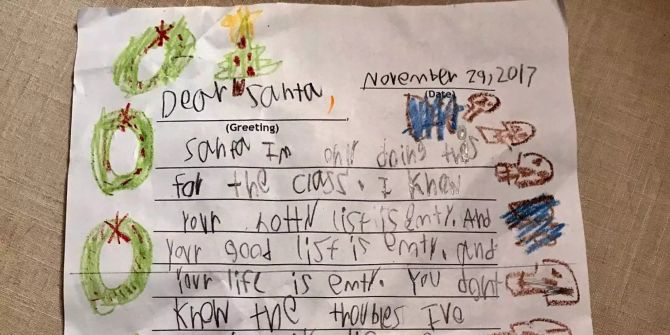 November 29, 2017
(Date)
Dear Santa,
(Greeting)
Santa Im only doing this
for the class. I Know
your notty list is emty. And
your good list is emty. and
Your life is emty. You dont
Know the troubles Ive